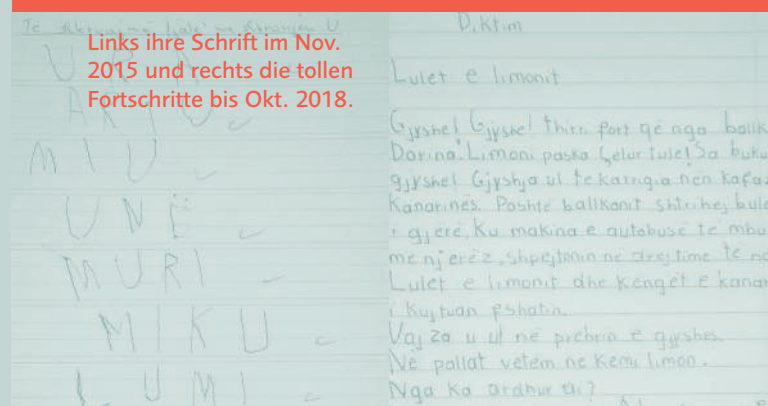 Links ihre Schrift im Nov.
2015 und rechts die tollen
Fortschritte bis Okt. 2018.
MIU
UNË
MURI
MIKU
LUMI
Diktim
Lulet e limonit
Gjyshe! Gjyshe! thirri fort që nga ballk
Dorina. Limoni paska çelur lule! Sa buku
gjyshe! Gjyshja ul te karrigia nën kafaz
Kanarinës. Poshtë ballkonit shtrihej bule
i gjerë, Ku makina e autobusë të mbu
me njerëz, shpejtonin në drejtime të nd
Lulet e limonit dhe këngët e kanar
i Kujtuan fshatin.
Vajza u ul në prehrin e gjyshes.
Në pallat vetëm ne Kemi limon.
Nga Ka ardhur ai?